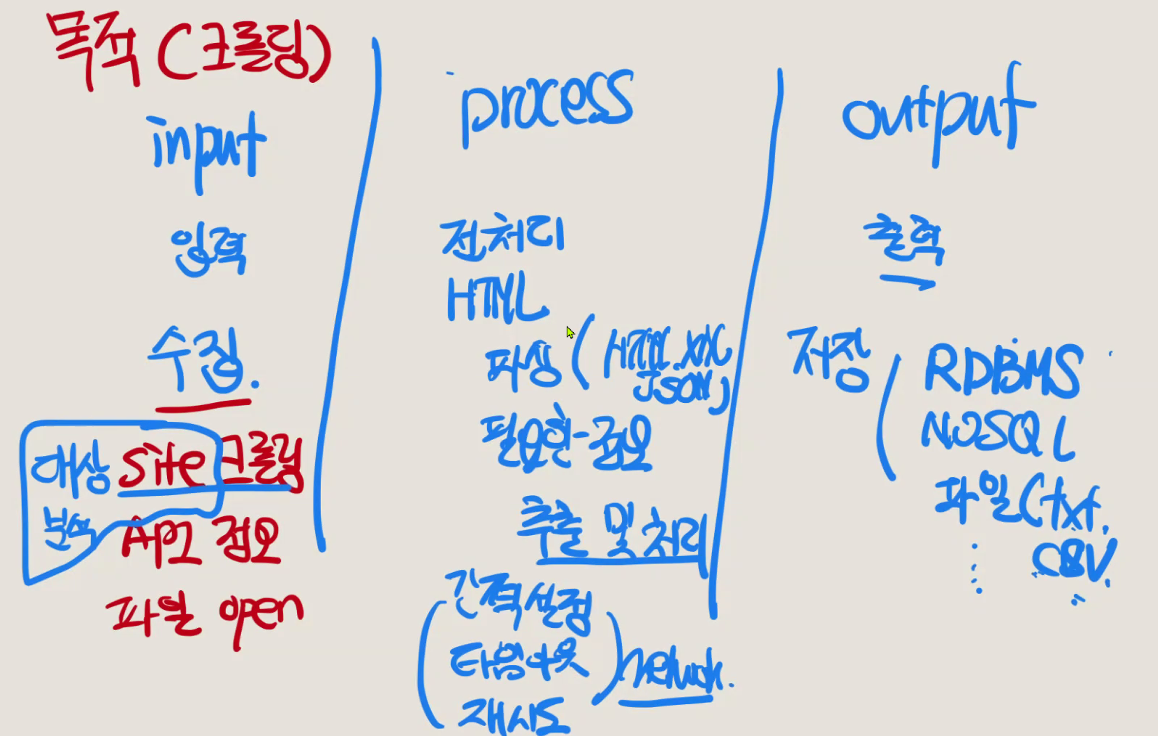 목적 (크롤링)
input
입력
수집.
대상 site 크롤링
분석 API 정보
파일 open
process
전처리
HTML
파싱 (HTML, XML
JSON)
필요한 정보
추출 및 처리
간격 설정
타임아웃
재시도
network.
output
출력
저장
RDBMS
NOSQL
파일 (txt,
CSV